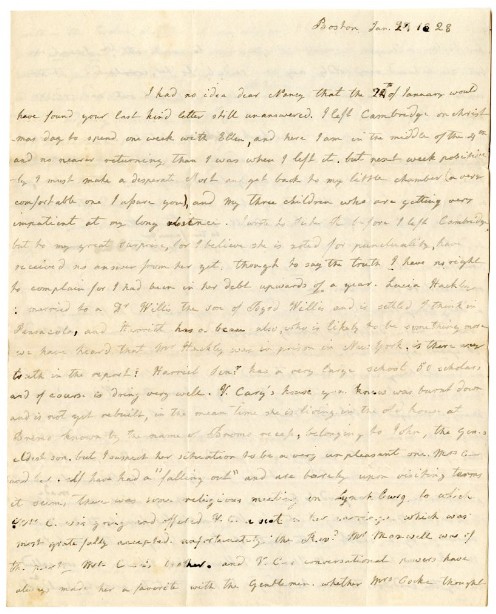 Boston Jan. 29, 1828
I had no idea dear Nancy that the 29th of January would
have found your last kind letter still unanswered. I left Cambridge on christ
mas day to spend one week with Ellen, and here I am in the middle of the 4th
and no nearer returning, than I was when I left it. but next week positive
ly I must make a desperate effort and get back to my little chamber (a very
comfortable one I assure you), and my three children who are getting very
impatient at my long absence. I wrote to before I left Cambridge
but to my great surprise, for I believe she is noted for punctuality, have
received no answer from her yet, though to say the truth I have no right
to complain for I had been in her debt upwards of a year. Lucia Hackley
is married to a Dr Willis the son of Byrd Willis and is settled I think in
Pensacola, and Harriet has a beau also, who is likely to be something more
we have heard that Mr Hackley was in prison in New York, is there any
truth in the report? Harriet has a very large school, 58 scholars
and of course is doing very well. V. Cary's house you know was burnt down
and is not yet rebuilt, in the mean time she is living in the old house at
Bremo known by the name of Bremo recess, belonging to John, the Gen.
eldest son, but I suspect her situation to be a very unpleasant one. Mrs C.
and her have had a "falling out" and are barely upon visiting terms
it seems there was some religious meeting in Lynchburg, to which
Mrs C. was going and offered V. C. a seat in her carriage which was
most gratefully accepted. unfortunately the Revd Mr Maxwell was of
the party Mrs C brother. and V. C.s conversational powers have
always made her a favorite with the Gentlemen. whether Mrs Cocke thought